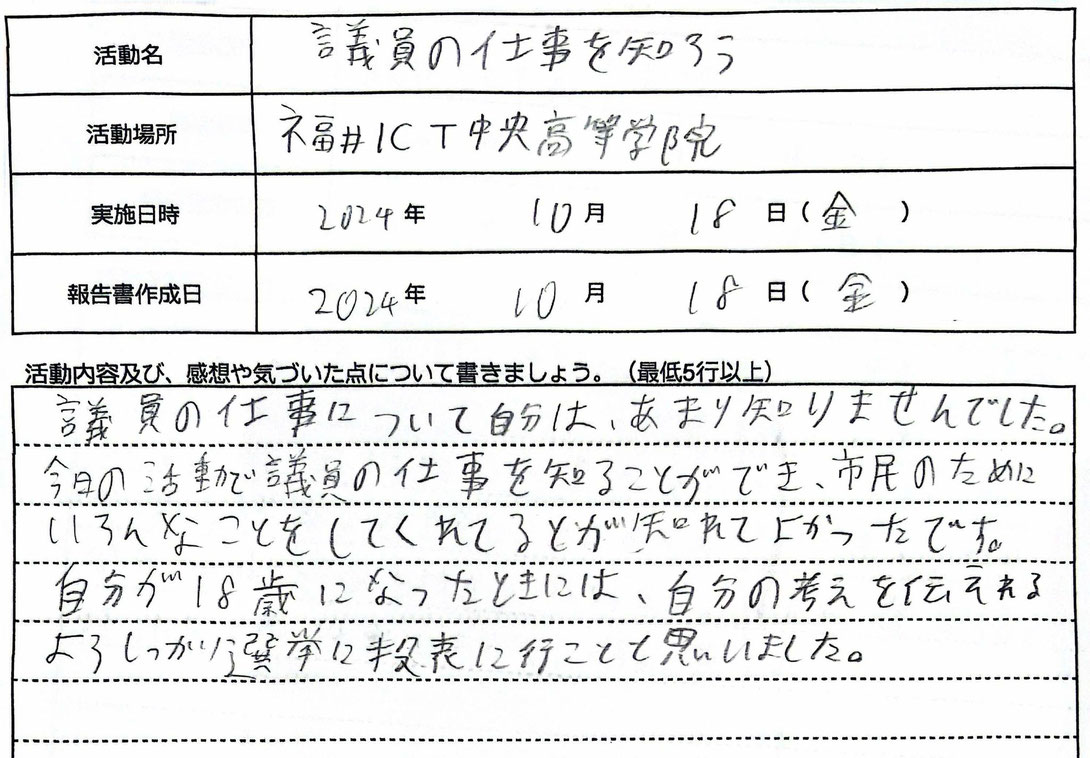 活動名 議員の仕事を知ろう
活動場所 福井ICT中央高等学院
実施日時 2024年 10月 18日(金)
報告書作成日 2024年 10月 18日(金)
活動内容及び、感想や気づいた点について書きましょう。(最低5行以上)
議員の仕事について自分は、あまり知りませんでした。
今日の活動で議員の仕事を知ることができ、市民のために
いろんなことをしてくれてるとが知れてよかったです。
自分が18歳になったときには、自分の考えを伝えれる
よろしっかり選挙に投表に行こと思いました。